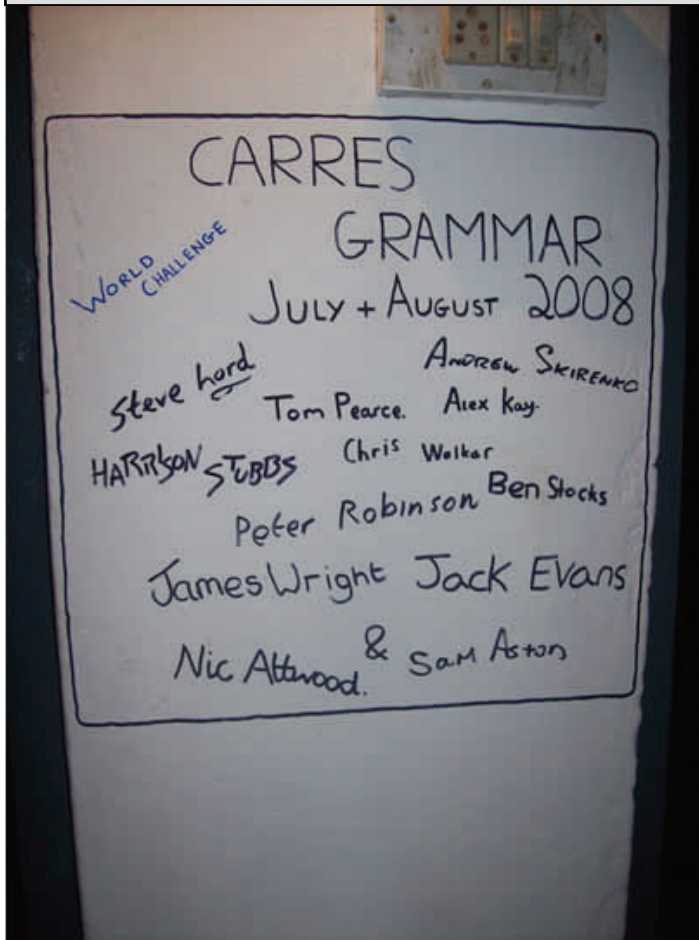 CARRES
GRAMMAR
WORLD
CHALLENGE
JULY + AUGUST 2008
Steve Lord
ANDREW SKIRENKO
Tom Pearce. Alex Kay.
HARRISON STUBBS
Chris Walker
Peter Robinson Ben Stocks
James Wright Jack Evans
Nic Attwood. & Sam Aston